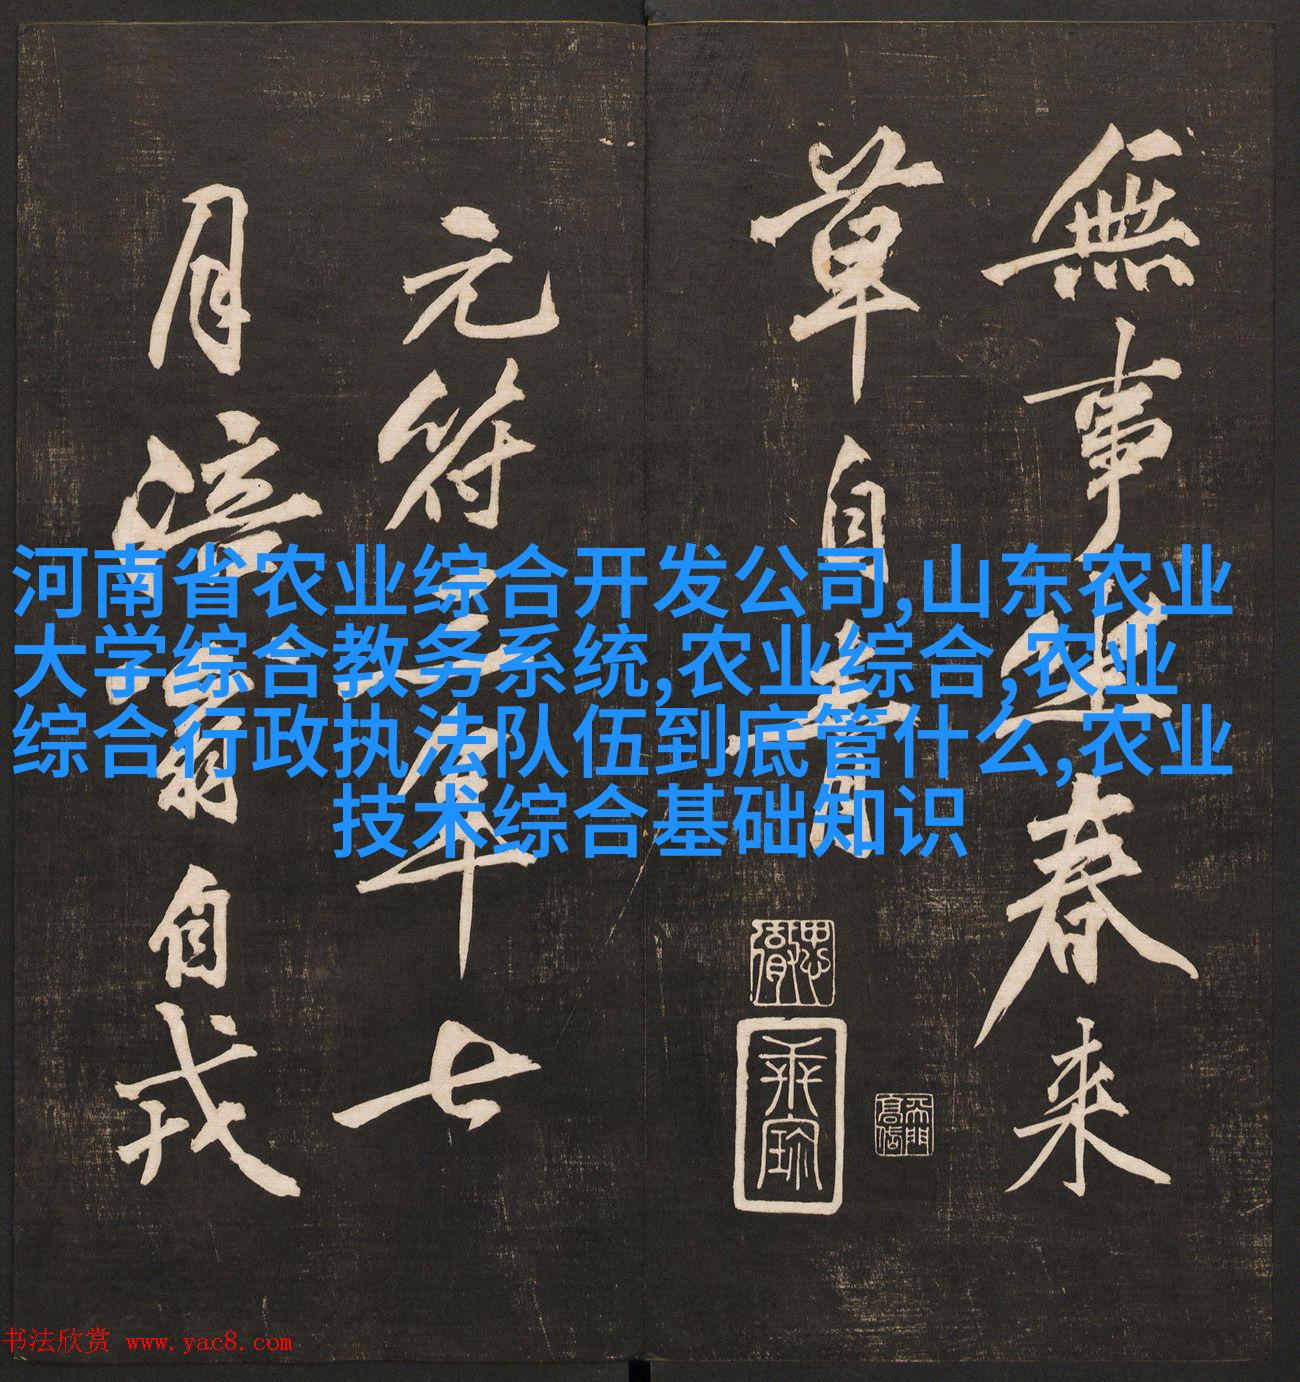 無事坐春来
草自青
元符三年七
月涪翁自戎
河南省农业综合开发公司,山东农业
大学综合教务系统,农业综合,农业
综合行政执法队伍到底管什么,农业
技术综合基础知识
书法欣赏 www.yac8.com